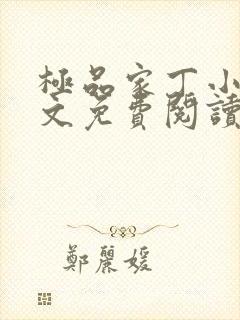 極品家丁小
文免費閱讀
鄭麗媛